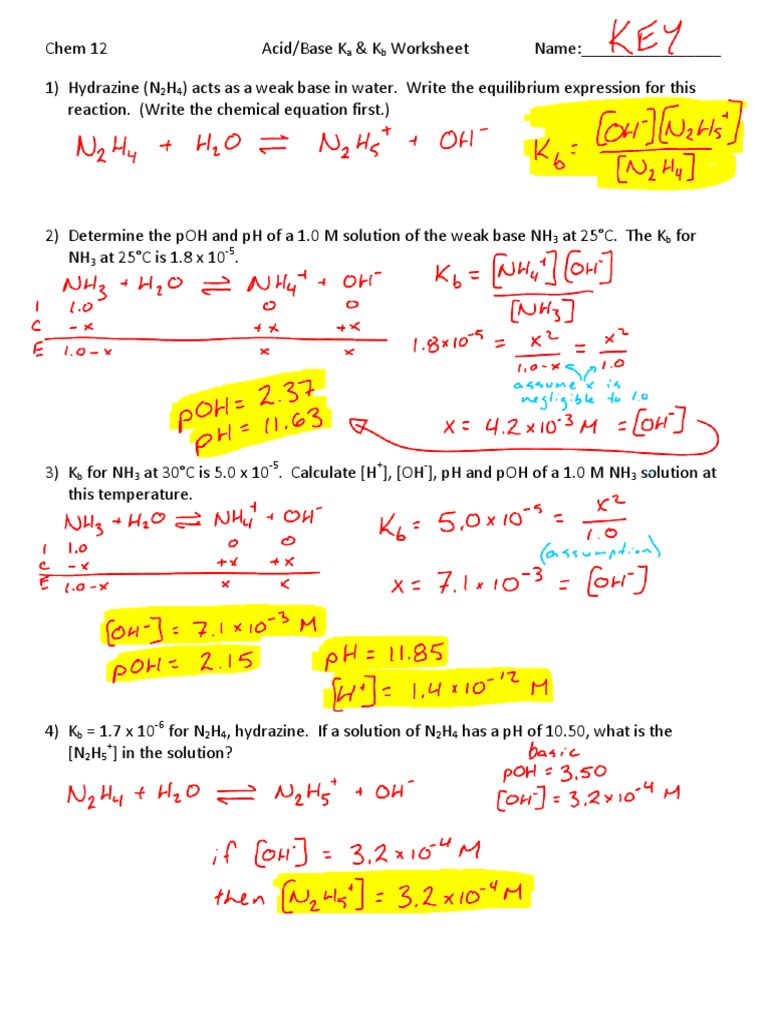 Chem 12 Acid/Base Kₐ & K_b Worksheet Name: KEY
1) Hydrazine (N₂H₄) acts as a weak base in water. Write the equilibrium expression for this
reaction. (Write the chemical equation first.)
N₂H₄ + H₂O ⇌ N₂H₅⁺ + OH⁻
K_b = [OH⁻][N₂H₅⁺] / [N₂H₄]
2) Determine the pOH and pH of a 1.0 M solution of the weak base NH₃ at 25°C. The K_b for
NH₃ at 25°C is 1.8 x 10⁻⁵.
NH₃ + H₂O ⇌ NH₄⁺ + OH⁻
I 1.0 0 0
C -x +x +x
E 1.0-x x x
K_b = [NH₄⁺][OH⁻] / [NH₃]
1.8×10⁻⁵ = x² / 1.0-x = x² / 1.0
assume x is
negligible to 1.0
x = 4.2×10⁻³ M = [OH⁻]
pOH = 2.37
pH = 11.63
3) K_b for NH₃ at 30°C is 5.0 x 10⁻⁵. Calculate [H⁺], [OH⁻], pH and pOH of a 1.0 M NH₃ solution at
this temperature.
NH₃ + H₂O ⇌ NH₄⁺ + OH⁻
I 1.0 0 0
C -x +x +x
E 1.0-x x x
K_b = 5.0×10⁻⁵ = x² / 1.0
(assumption)
x = 7.1×10⁻³ = [OH⁻]
[OH⁻] = 7.1×10⁻³ M
pOH = 2.15
pH = 11.85
[H⁺] = 1.4×10⁻¹² M
4) K_b = 1.7 x 10⁻⁶ for N₂H₄, hydrazine. If a solution of N₂H₄ has a pH of 10.50, what is the
[N₂H₅⁺] in the solution?
basic
pOH = 3.50
[OH⁻] = 3.2×10⁻⁴ M
N₂H₄ + H₂O ⇌ N₂H₅⁺ + OH⁻
if [OH⁻] = 3.2×10⁻⁴ M
then [N₂H₅⁺] = 3.2×10⁻⁴ M